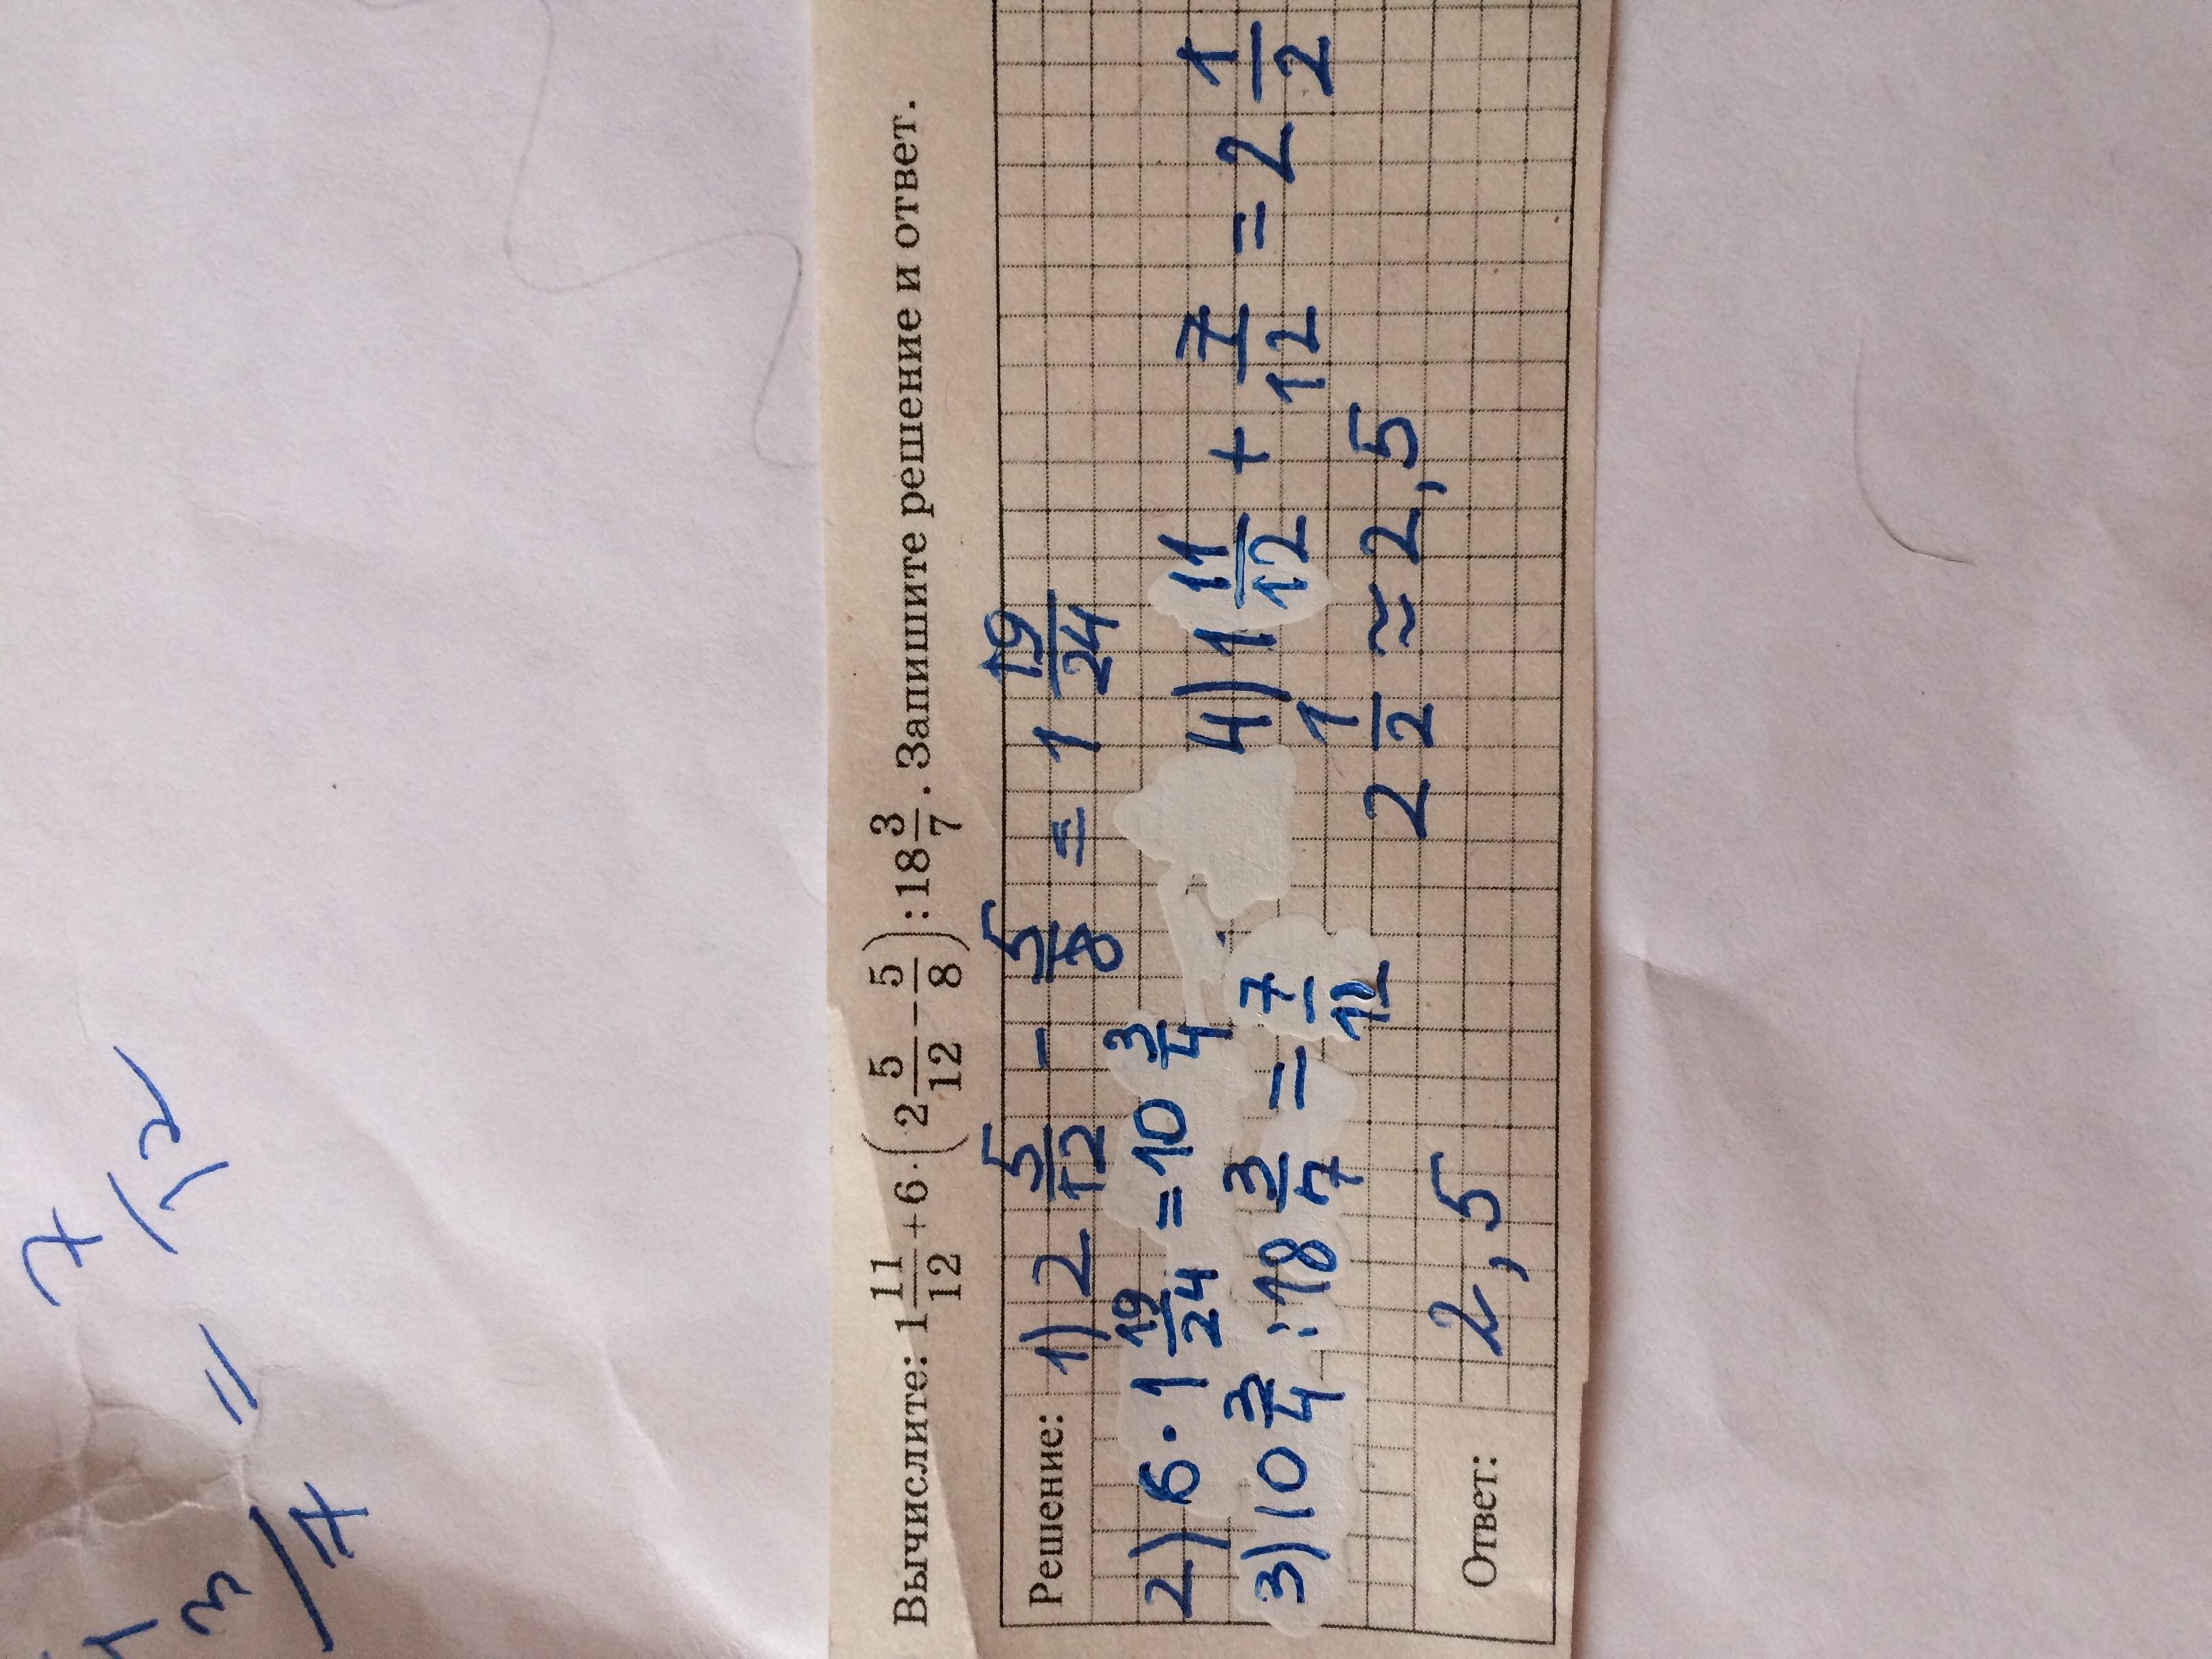 Вычислите: 1 11/12 + 6 · (2 5/12 − 5/8) : 18 3/7. Запишите решение и ответ.
Решение: 1) 2 5/12 − 5/8 = 1 19/24
2) 6 · 1 19/24 = 10 3/4
3) 10 3/4 : 18 3/7 = 7/12
4) 1 11/12 + 7/12 = 2 1/2
2 1/2 ≈ 2,5
Ответ: 2,5
3/7 = 7/12